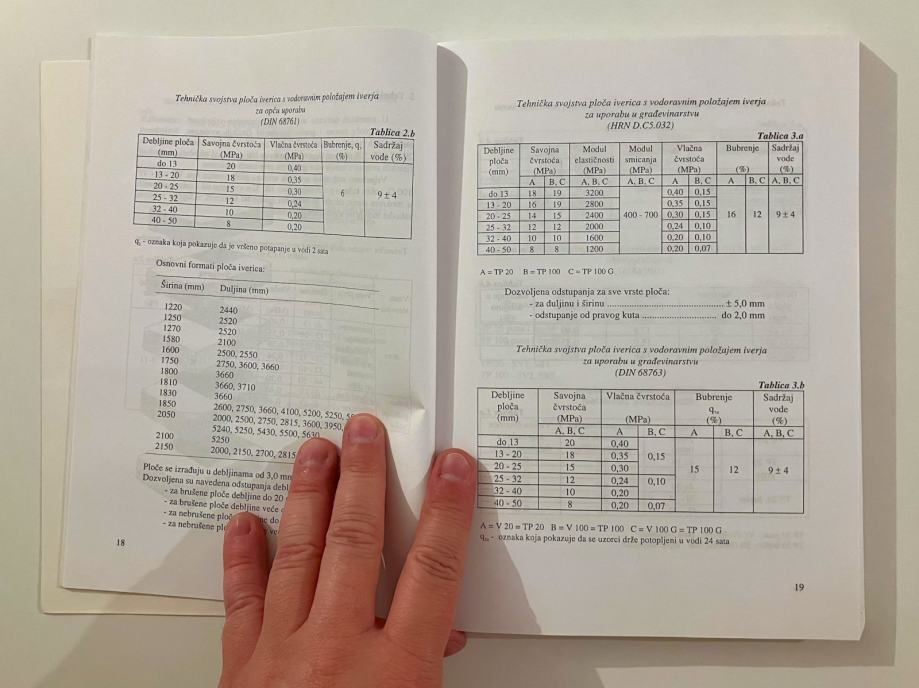 Tehnička svojstva ploča iverica s vodoravnim položajem iverja
za opću uporabu
(DIN 68761)
Tablica 2.b
Debljine ploča (mm) Savojna čvrstoća (MPa) Vlačna čvrstoća (MPa) Bubrenje, q, (%) Sadržaj vode (%)
do 13 20 0,40
13 - 20 18 0,35
20 - 25 15 0,30 6 9 ± 4
25 - 32 12 0,24
32 - 40 10 0,20
40 - 50 8 0,20
q, - oznaka koja pokazuje da je vršeno potapanje u vodi 2 sata
Osnovni formati ploča iverica:
Širina (mm) Duljina (mm)
1220 2440
1250 2520
1270 2520
1580 2100
1600 2500, 2550
1750 2750, 3600, 3660
1800 3660
1810 3660, 3710
1830 3660
1850 2600, 2750, 3660, 4100, 5200, 5250,
2050 2000, 2500, 2750, 2815, 3600, 3950,
5240, 5250, 5430, 5500, 5630
2100 5250
2150 2000, 2150, 2700, 2815
Ploče se izrađuju u debljinama od 3,0 mm
Dozvoljena su navedena odstupanja
- za brušene ploče debljine do 20
- za brušene ploče debljine veće
- za nebrušene do
- za nebrušene
18
Tehnička svojstva ploča iverica s vodoravnim položajem iverja
za uporabu u građevinarstvu
(HRN D.C5.032)
Tablica 3.a
Debljine ploča (mm) Savojna čvrstoća (MPa) Modul elastičnosti (MPa) Modul smicanja (MPa) Vlačna čvrstoća (MPa) Bubrenje (%) Sadržaj vode (%)
A B, C A, B, C A B, C A B, C A, B, C
do 13 18 19 3200 0,40 0,15
13 - 20 16 19 2800 0,35 0,15
20 - 25 14 15 2400 400 - 700 0,30 0,15 16 12 9 ± 4
25 - 32 12 12 2000 0,24 0,10
32 - 40 10 10 1600 0,20 0,10
40 - 50 8 8 1200 0,20 0,07
A = TP 20 B = TP 100 C = TP 100 G
Dozvoljena odstupanja za sve vrste ploča:
- za duljinu i širinu ........................................ ± 5,0 mm
- odstupanje od pravog kuta ......................... do 2,0 mm
Tehnička svojstva ploča iverica s vodoravnim položajem iverja
za uporabu u građevinarstvu
(DIN 68763)
Tablica 3.b
Debljine ploča (mm) Savojna čvrstoća (MPa) Vlačna čvrstoća (MPa) Bubrenje (%) Sadržaj vode (%)
A, B, C A B, C A B, C A, B, C
do 13 20 0,40
13 - 20 18 0,35 0,15
20 - 25 15 0,30 15 12 9 ± 4
25 - 32 12 0,24 0,10
32 - 40 10 0,20
40 - 50 8 0,20 0,07
A = V 20 = TP 20 B = V 100 = TP 100 C = V 100 G = TP 100 G
- oznaka koja pokazuje da se uzorci drže potopljeni u vodi 24 sata
19